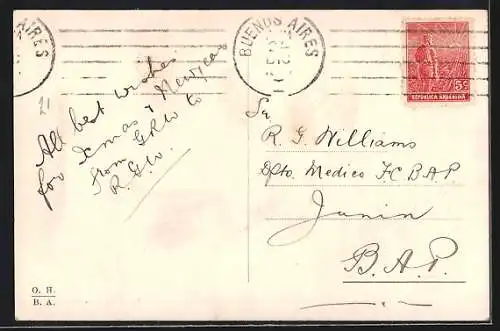 BUENOS AIRES
AIRES
21
All best wishes
for Xmas & New Year
from GRW to
R.G.W.
5c
REPUBLICA ARGENTINA
Sr.
R. G. Williams
Dpto. Medico F.C.B.A.P.
Junin
B.A.P.
O. H.
B. A.